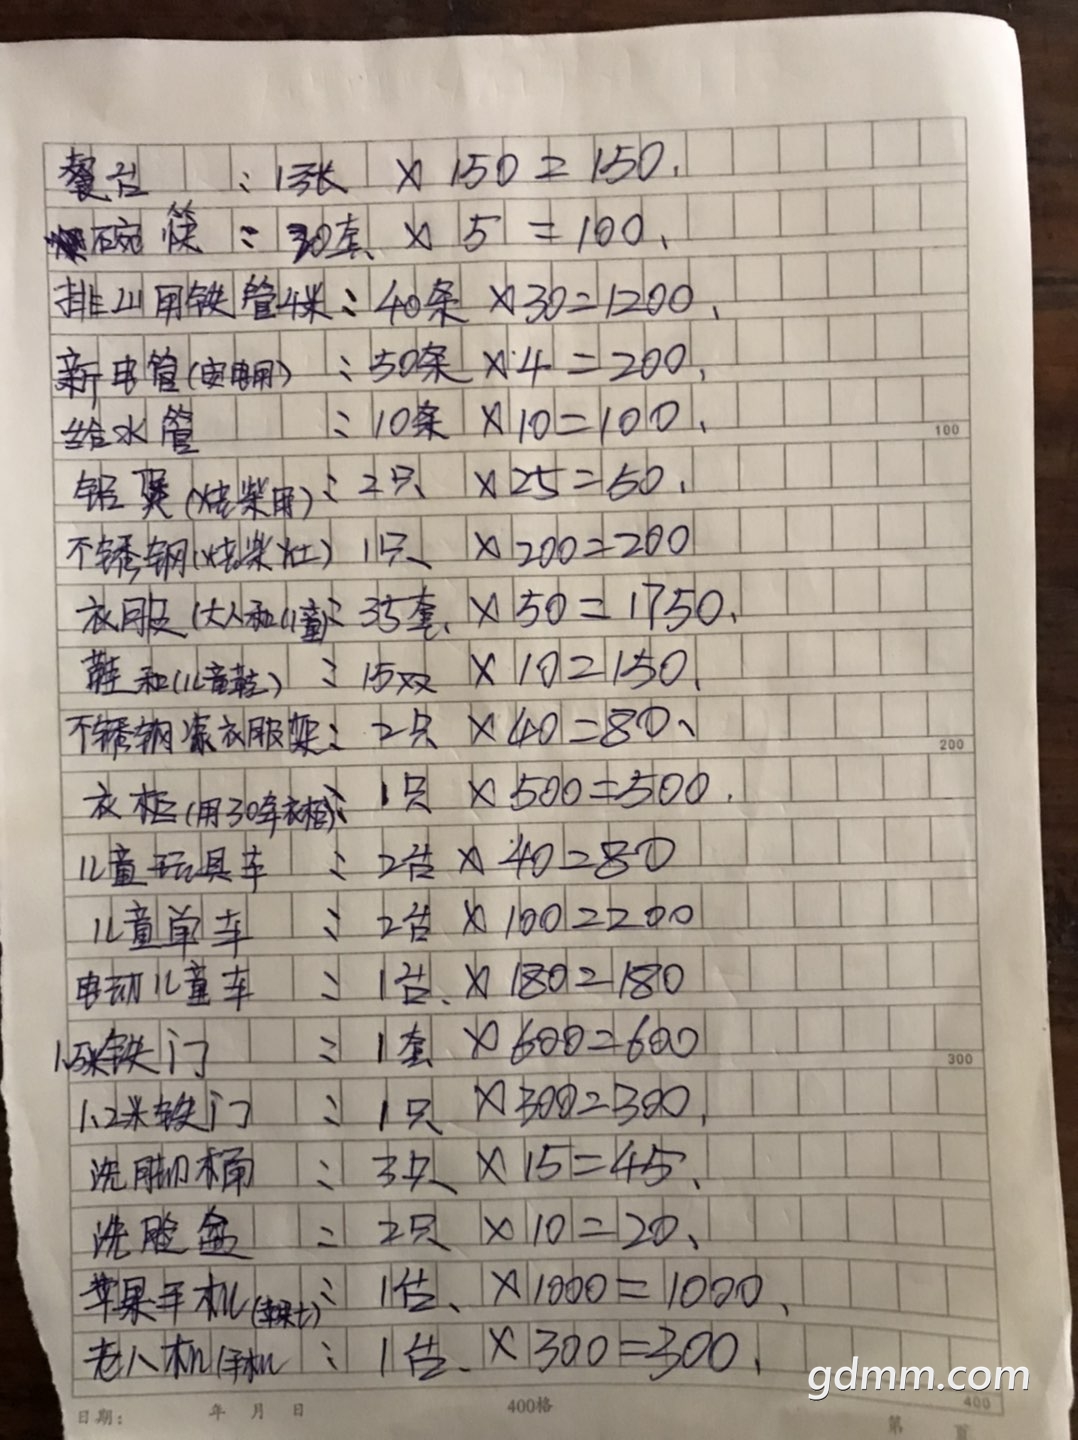 餐台 : 1张 × 150 = 150.
碗筷 : 30套 × 5 = 100、
排山用铁管4米 : 40条 × 30 = 1200、
新电管(安电用) : 50条 × 4 = 200、
给水管 : 10条 × 10 = 100、
铝煲(烧柴用) : 2只 × 25 = 50、
不锈钢(烧柴灶) 1只 × 200 = 200
衣服(大人和儿童) : 35套、× 50 = 1750、
鞋和(儿童鞋) : 15双 × 10 = 150、
不锈钢凉衣服架 : 2只 × 40 = 80、
衣柜(用30年衣柜) : 1只 × 500 = 500.
儿童玩具车 : 2台 × 40 = 80
儿童单车 : 2台 × 100 = 200
电动儿童车 : 1台、× 180 = 180
1.5米铁门 : 1套 × 600 = 600
1.2米铁门 : 1只 × 300 = 300、
洗脚桶 : 3只 × 15 = 45、
洗脸盆 : 2只 × 10 = 20、
苹果手机(苹果七) : 1台、× 1000 = 1000、
老人机(手机 : 1台、× 300 = 300、
100
200
300
400
日期: 年 月 日 400格 第 页
gdmm.com